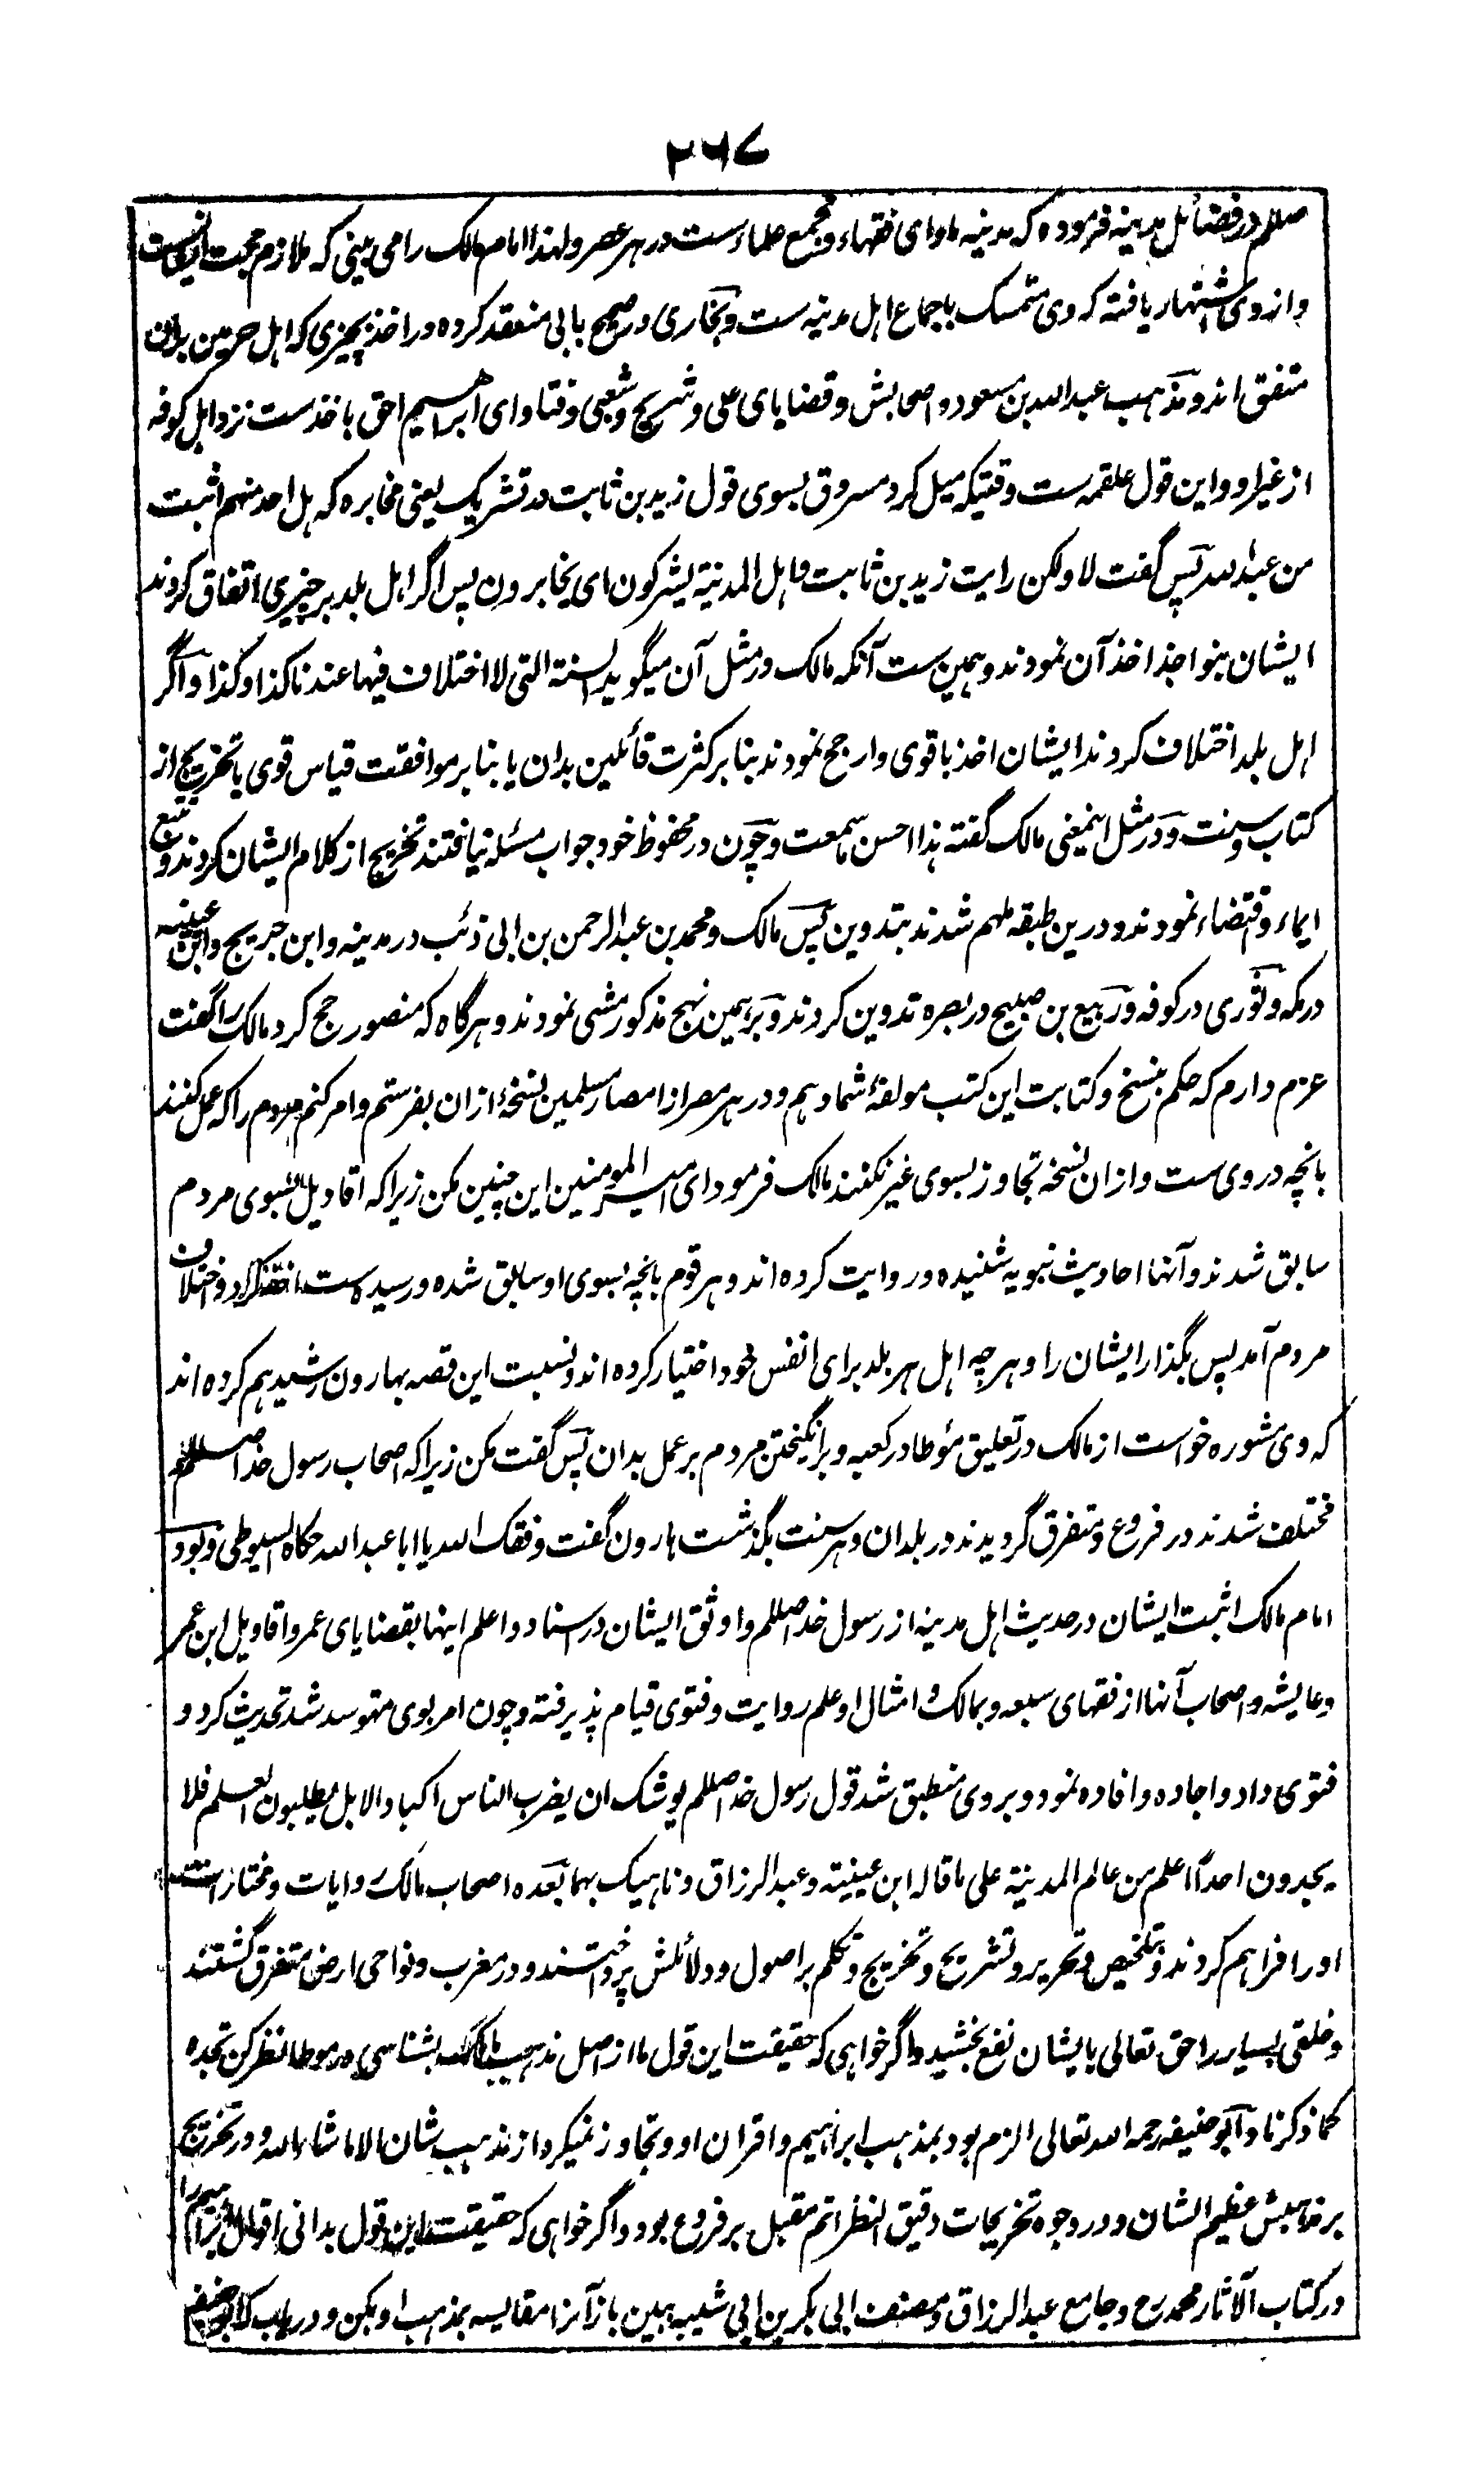 ۲۶۷
صللم در فضائل مدینه فرموده که مدینه ماوای فقهاء و مجمع علماءست در هر عصر و لهذا امام مالک را می بینی که ملازم محجت ایشانست
و از وی اشتهار یافته که وی متمسک باجماع اهل مدینه ست و بخاری در صحیح بابی منعقد کرده در اخذ بچیزی که اهل حرمین بران
متفق اند و مذهب عبدالله بن مسعود و اصحابش و قضایای علی و شریح و شعبی و فتاوای ابراهیم احق باخذست نزد اهل کوفه
از غیر او و این قول علقمه ست وقتیکه میل کرد مسروق بسوی قول زید بن ثابت در تشریک یعنی مخابره که هل احد منهم اثبت
من عبدالله پس گفت لا ولکن رایت زید بن ثابت و اهل المدینة یشرکون ای یخابرون پس اگر اهل بلد بر چیزی اتفاق کردند
ایشان بنواجذ اخذ آن نمودند و همین ست آنکه مالک در مثل آن میگوید السنة التی لا اختلاف فیها عندنا کذا و کذا و اگر
اهل بلد اختلاف کردند ایشان اخذ باقوی و ارجح نمودند بنا بر کثرت قائلین بدان یا بنا بر موافقت قیاس قوی یا تخریج از
کتاب و سنت و در مثل اینمعنی مالک گفته هذا احسن ما سمعت و چون در محفوظ خود جواب مسئله نیافتند تخریج از کلام ایشان کردند و تتبع
ایماء و اقتضاء نمودند و درین طبقه ملهم شدند بتدوین پس مالک و محمد بن عبدالرحمن بن ابی ذئب در مدینه و ابن جریج و ابن عیینه
در مکه و ثوری در کوفه و ربیع بن صبیح در بصره تدوین کردند و بر همین نهج مذکور مشی نمودند و هرگاه که منصور حج کرد مالک را گفت
عزم دارم که حکم بنسخ و کتابت این کتب مولفهٔ شما دهم و در هر مصر از امصار مسلمین نسخهٔ ازان بفرستم و امر کنم مردم را که عمل کنند
بانچه در وی ست و ازان نسخه تجاوز بسوی غیر نکنند مالک فرمود ای امیرالمومنین این چنین مکن زیرا که اقاویل بسوی مردم
سابق شدند و آنها احادیث نبویه شنیده و روایت کرده اند و هر قوم بانچه بسوی او سابق شده و رسیده ست اخذ کرد و اختلاف
مردم آمد پس بگذار ایشان را و هر چه اهل هر بلد برای انفس خود اختیار کرده اند و نسبت این قصه بهارون رشید هم کرده اند
که وی مشوره خواست از مالک در تعلیق مؤطا در کعبه و برانگیختن مردم بر عمل بدان پس گفت مکن زیرا که اصحاب رسول خدا صللم
مختلف شدند در فروع و متفرق گردیدند در بلدان و هر سنت بگذشت هارون گفت وفقک الله یا ابا عبدالله حکاه السیوطی و بود
امام مالک اثبت ایشان در حدیث اهل مدینه از رسول خدا صللم و اوثق ایشان در اسناد و اعلم اینها بقضایای عمر و اقاویل ابن عمر
و عایشه و اصحاب آنها از فقهای سبعه و بمالک و امثال او علم روایت و فتوی قیام پذیرفته و چون امر بوی متوسد شد تحدیث کرد و
فتوی داد و اجاده و افاده نمود و بروی منطبق شد قول رسول خدا صللم یوشک ان یضرب الناس اکباد الابل یطلبون العلم فلا
یجدون احدا اعلم من عالم المدینة علی ما قاله ابن عیینة و عبدالرزاق و ناهیک بهما بعده اصحاب مالک روایات و مختارات
او را فراهم کردند و بتلخیص و تحریر و تشریح و تخریج و تکلم بر اصول و دلائلش پرداختند و در مغرب و نواحی ارض متفرق گشتند
و خلقی بسیار را حق تعالی بایشان نفع بخشید و اگر خواهی که حقیقت این قول ما از اصل مذهب مالک بشناسی در موطا نظر کن تجده
کما ذکرنا و ابوحنیفه رحمه الله تعالی الزم بود بمذهب ابراهیم و اقران او و تجاوز نمیکرد از مذهب شان الا ماشاءالله و در تخریج
بر مذهبش عظیم الشان و در وجوه تخریجات دقیق النظر اتم مقبل بر فروع بود و اگر خواهی که حقیقت این قول بدانی اقوال ابراهیم را
در کتاب الآثار محمد رح و جامع عبدالرزاق و مصنف ابی بکر بن ابی شیبه ببین باز آنرا مقایسه بمذهب او بکن و دریاب که ابوحنیفه